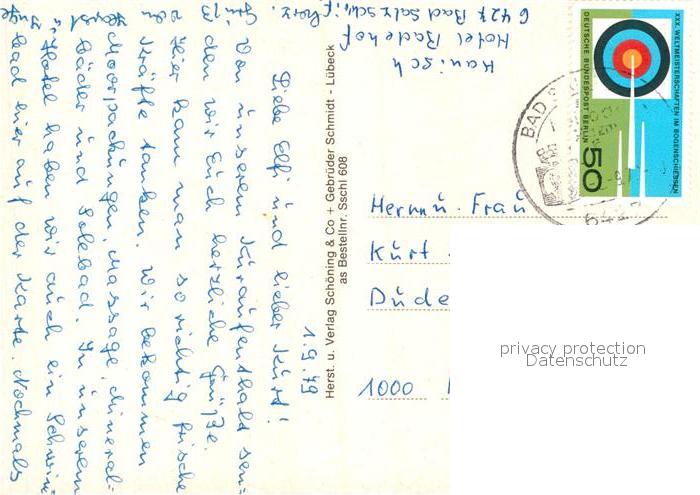 1.9.79
Liebe Elf und lieber Kurt!
Von unserem Kuraufenthalt sen=
den wir Euch herzliche Grüße.
Hier kann man so richtig frische
Kräfte tanken. Wir bekommen
Moorpackungen, Massage, Mineral=
Bäder und Solebad. In unserem
Hotel haben wir auch ein Schwimm=
bad hier auf der Karte. Nochmals
Hotel Badehof
6427 Bad Salzschlirf
Herst. u. Verlag Schöning & Co + Gebrüder Schmidt - Lübeck
as Bestellnr. Sschl 608
XXX. WELTMEISTERSCHAFTEN IM BOGENSCHIESSEN
DEUTSCHE BUNDESPOST BERLIN
50
BAD
6427
Herrn u. Frau
Kurt
Dude
1000
privacy protection
Datenschutz